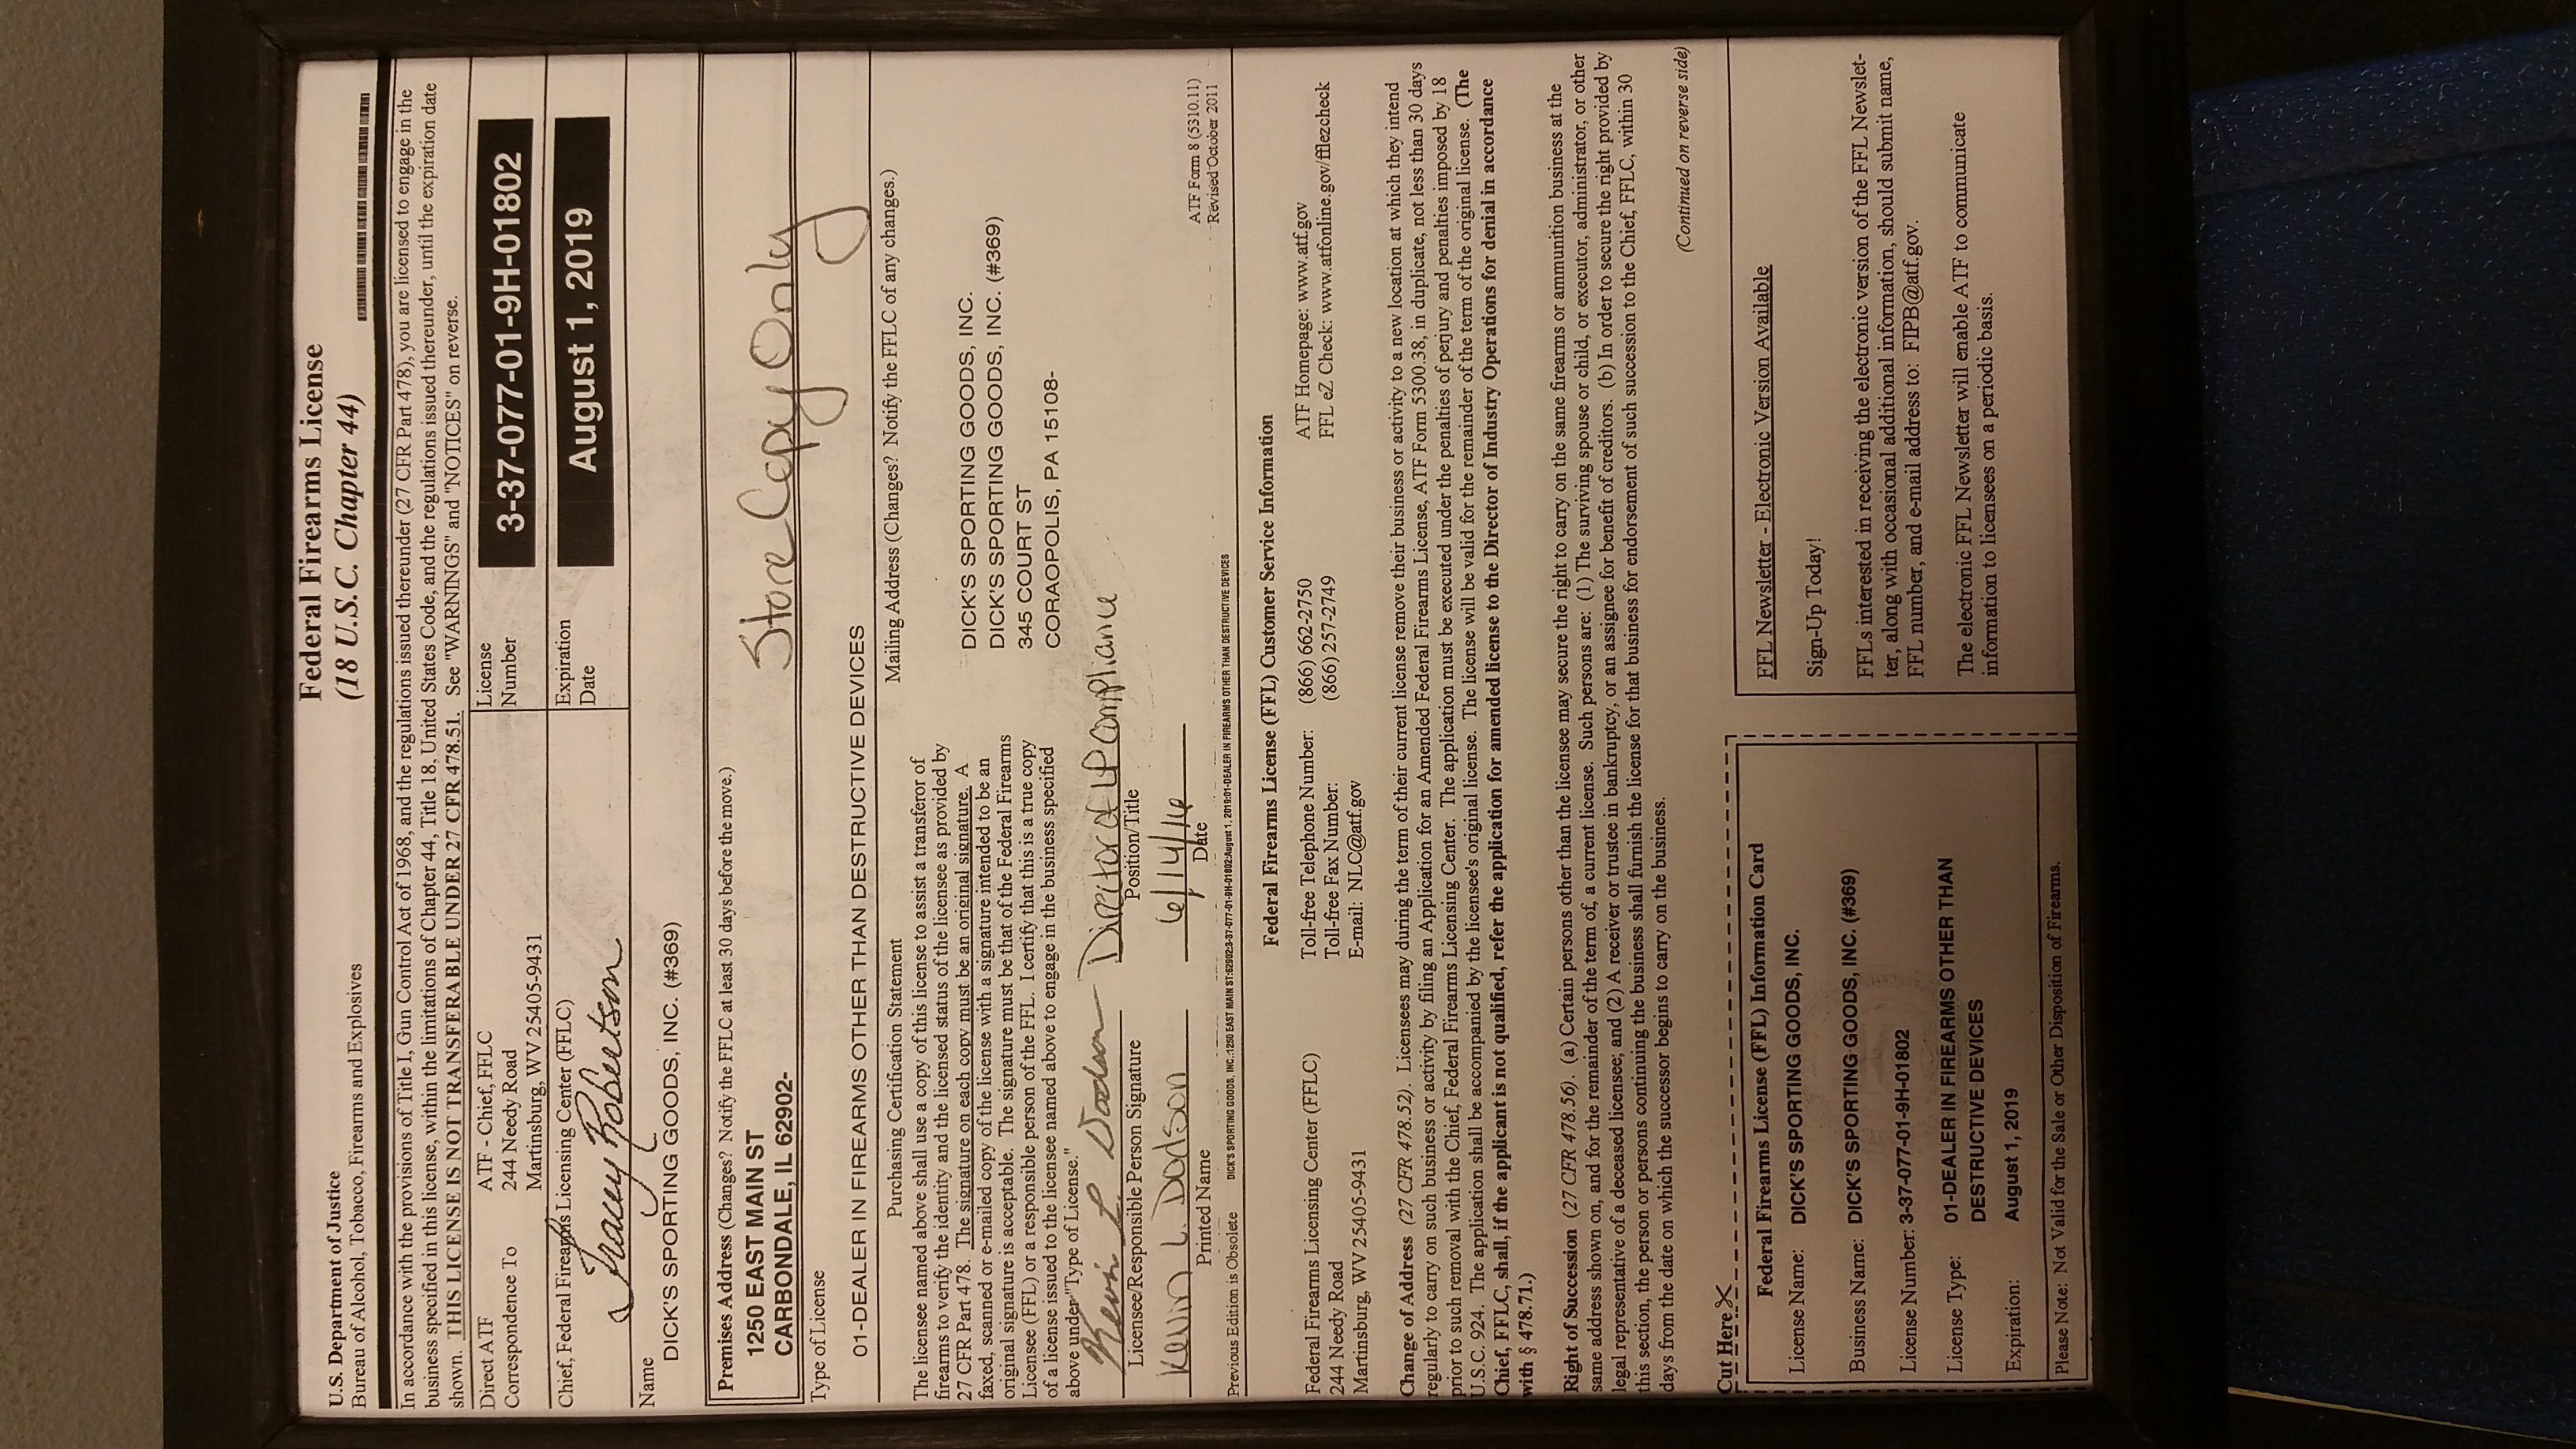 U.S. Department of Justice
Bureau of Alcohol, Tobacco, Firearms and Explosives
Federal Firearms License
(18 U.S.C. Chapter 44)
In accordance with the provisions of Title I, Gun Control Act of 1968, and the regulations issued thereunder (27 CFR Part 478), you are licensed to engage in the
business specified in this license, within the limitations of Chapter 44, Title 18, United States Code, and the regulations issued thereunder, until the expiration date
shown. THIS LICENSE IS NOT TRANSFERABLE UNDER 27 CFR 478.51. See "WARNINGS" and "NOTICES" on reverse.
Direct ATF
Correspondence To
ATF - Chief, FFLC
244 Needy Road
Martinsburg, WV 25405-9431
License
Number
3-37-077-01-9H-01802
Chief, Federal Firearms Licensing Center (FFLC)
Tracey Robertson
Expiration
Date
August 1, 2019
Name
DICK'S SPORTING GOODS, INC. (#369)
Premises Address (Changes? Notify the FFLC at least 30 days before the move.)
1250 EAST MAIN ST
CARBONDALE, IL 62902-
Store Copy Only
Type of License
01-DEALER IN FIREARMS OTHER THAN DESTRUCTIVE DEVICES
Purchasing Certification Statement
The licensee named above shall use a copy of this license to assist a transferor of
firearms to verify the identity and the licensed status of the licensee as provided by
27 CFR Part 478. The signature on each copy must be an original signature. A
faxed, scanned or e-mailed copy of the license with a signature intended to be an
original signature is acceptable. The signature must be that of the Federal Firearms
Licensee (FFL) or a responsible person of the FFL. I certify that this is a true copy
of a license issued to the licensee named above to engage in the business specified
above under "Type of License."
Mailing Address (Changes? Notify the FFLC of any changes.)
DICK'S SPORTING GOODS, INC.
DICK'S SPORTING GOODS, INC. (#369)
345 COURT ST
CORAOPOLIS, PA 15108-
Kevin L. Dodson
Director of LP Compliance
Licensee/Responsible Person Signature
Position/Title
Kevin L. Dodson
6/14/16
Printed Name
Date
ATF Form 8 (5310.11)
Revised October 2011
Previous Edition is Obsolete
DICK'S SPORTING GOODS, INC.:1250 EAST MAIN ST:62902:3-37-077-01-9H-01802:August 1, 2019:01-DEALER IN FIREARMS OTHER THAN DESTRUCTIVE DEVICES
Federal Firearms License (FFL) Customer Service Information
Federal Firearms Licensing Center (FFLC)
244 Needy Road
Martinsburg, WV 25405-9431
Toll-free Telephone Number: (866) 662-2750
Toll-free Fax Number: (866) 257-2749
E-mail: NLC@atf.gov
ATF Homepage: www.atf.gov
FFL eZ Check: www.atfonline.gov/fflezcheck
Change of Address (27 CFR 478.52). Licensees may during the term of their current license remove their business or activity to a new location at which they intend
regularly to carry on such business or activity by filing an Application for an Amended Federal Firearms License, ATF Form 5300.38, in duplicate, not less than 30 days
prior to such removal with the Chief, Federal Firearms Licensing Center. The application must be executed under the penalties of perjury and penalties imposed by 18
U.S.C. 924. The application shall be accompanied by the licensee's original license. The license will be valid for the remainder of the term of the original license. (The
Chief, FFLC, shall, if the applicant is not qualified, refer the application for amended license to the Director of Industry Operations for denial in accordance
with § 478.71.)
Right of Succession (27 CFR 478.56). (a) Certain persons other than the licensee may secure the right to carry on the same firearms or ammunition business at the
same address shown on, and for the remainder of the term of, a current license. Such persons are: (1) The surviving spouse or child, or executor, administrator, or other
legal representative of a deceased licensee; and (2) A receiver or trustee in bankruptcy, or an assignee for benefit of creditors. (b) In order to secure the right provided by
this section, the person or persons continuing the business shall furnish the license for that business for endorsement of such succession to the Chief, FFLC, within 30
days from the date on which the successor begins to carry on the business.
(Continued on reverse side)
Cut Here
Federal Firearms License (FFL) Information Card
License Name: DICK'S SPORTING GOODS, INC.
Business Name: DICK'S SPORTING GOODS, INC. (#369)
License Number: 3-37-077-01-9H-01802
License Type: 01-DEALER IN FIREARMS OTHER THAN
DESTRUCTIVE DEVICES
Expiration: August 1, 2019
Please Note: Not Valid for the Sale or Other Disposition of Firearms.
FFL Newsletter - Electronic Version Available
Sign-Up Today!
FFLs interested in receiving the electronic version of the FFL Newslet-
ter, along with occasional additional information, should submit name,
FFL number, and e-mail address to: FIPB@atf.gov.
The electronic FFL Newsletter will enable ATF to communicate
information to licensees on a periodic basis.